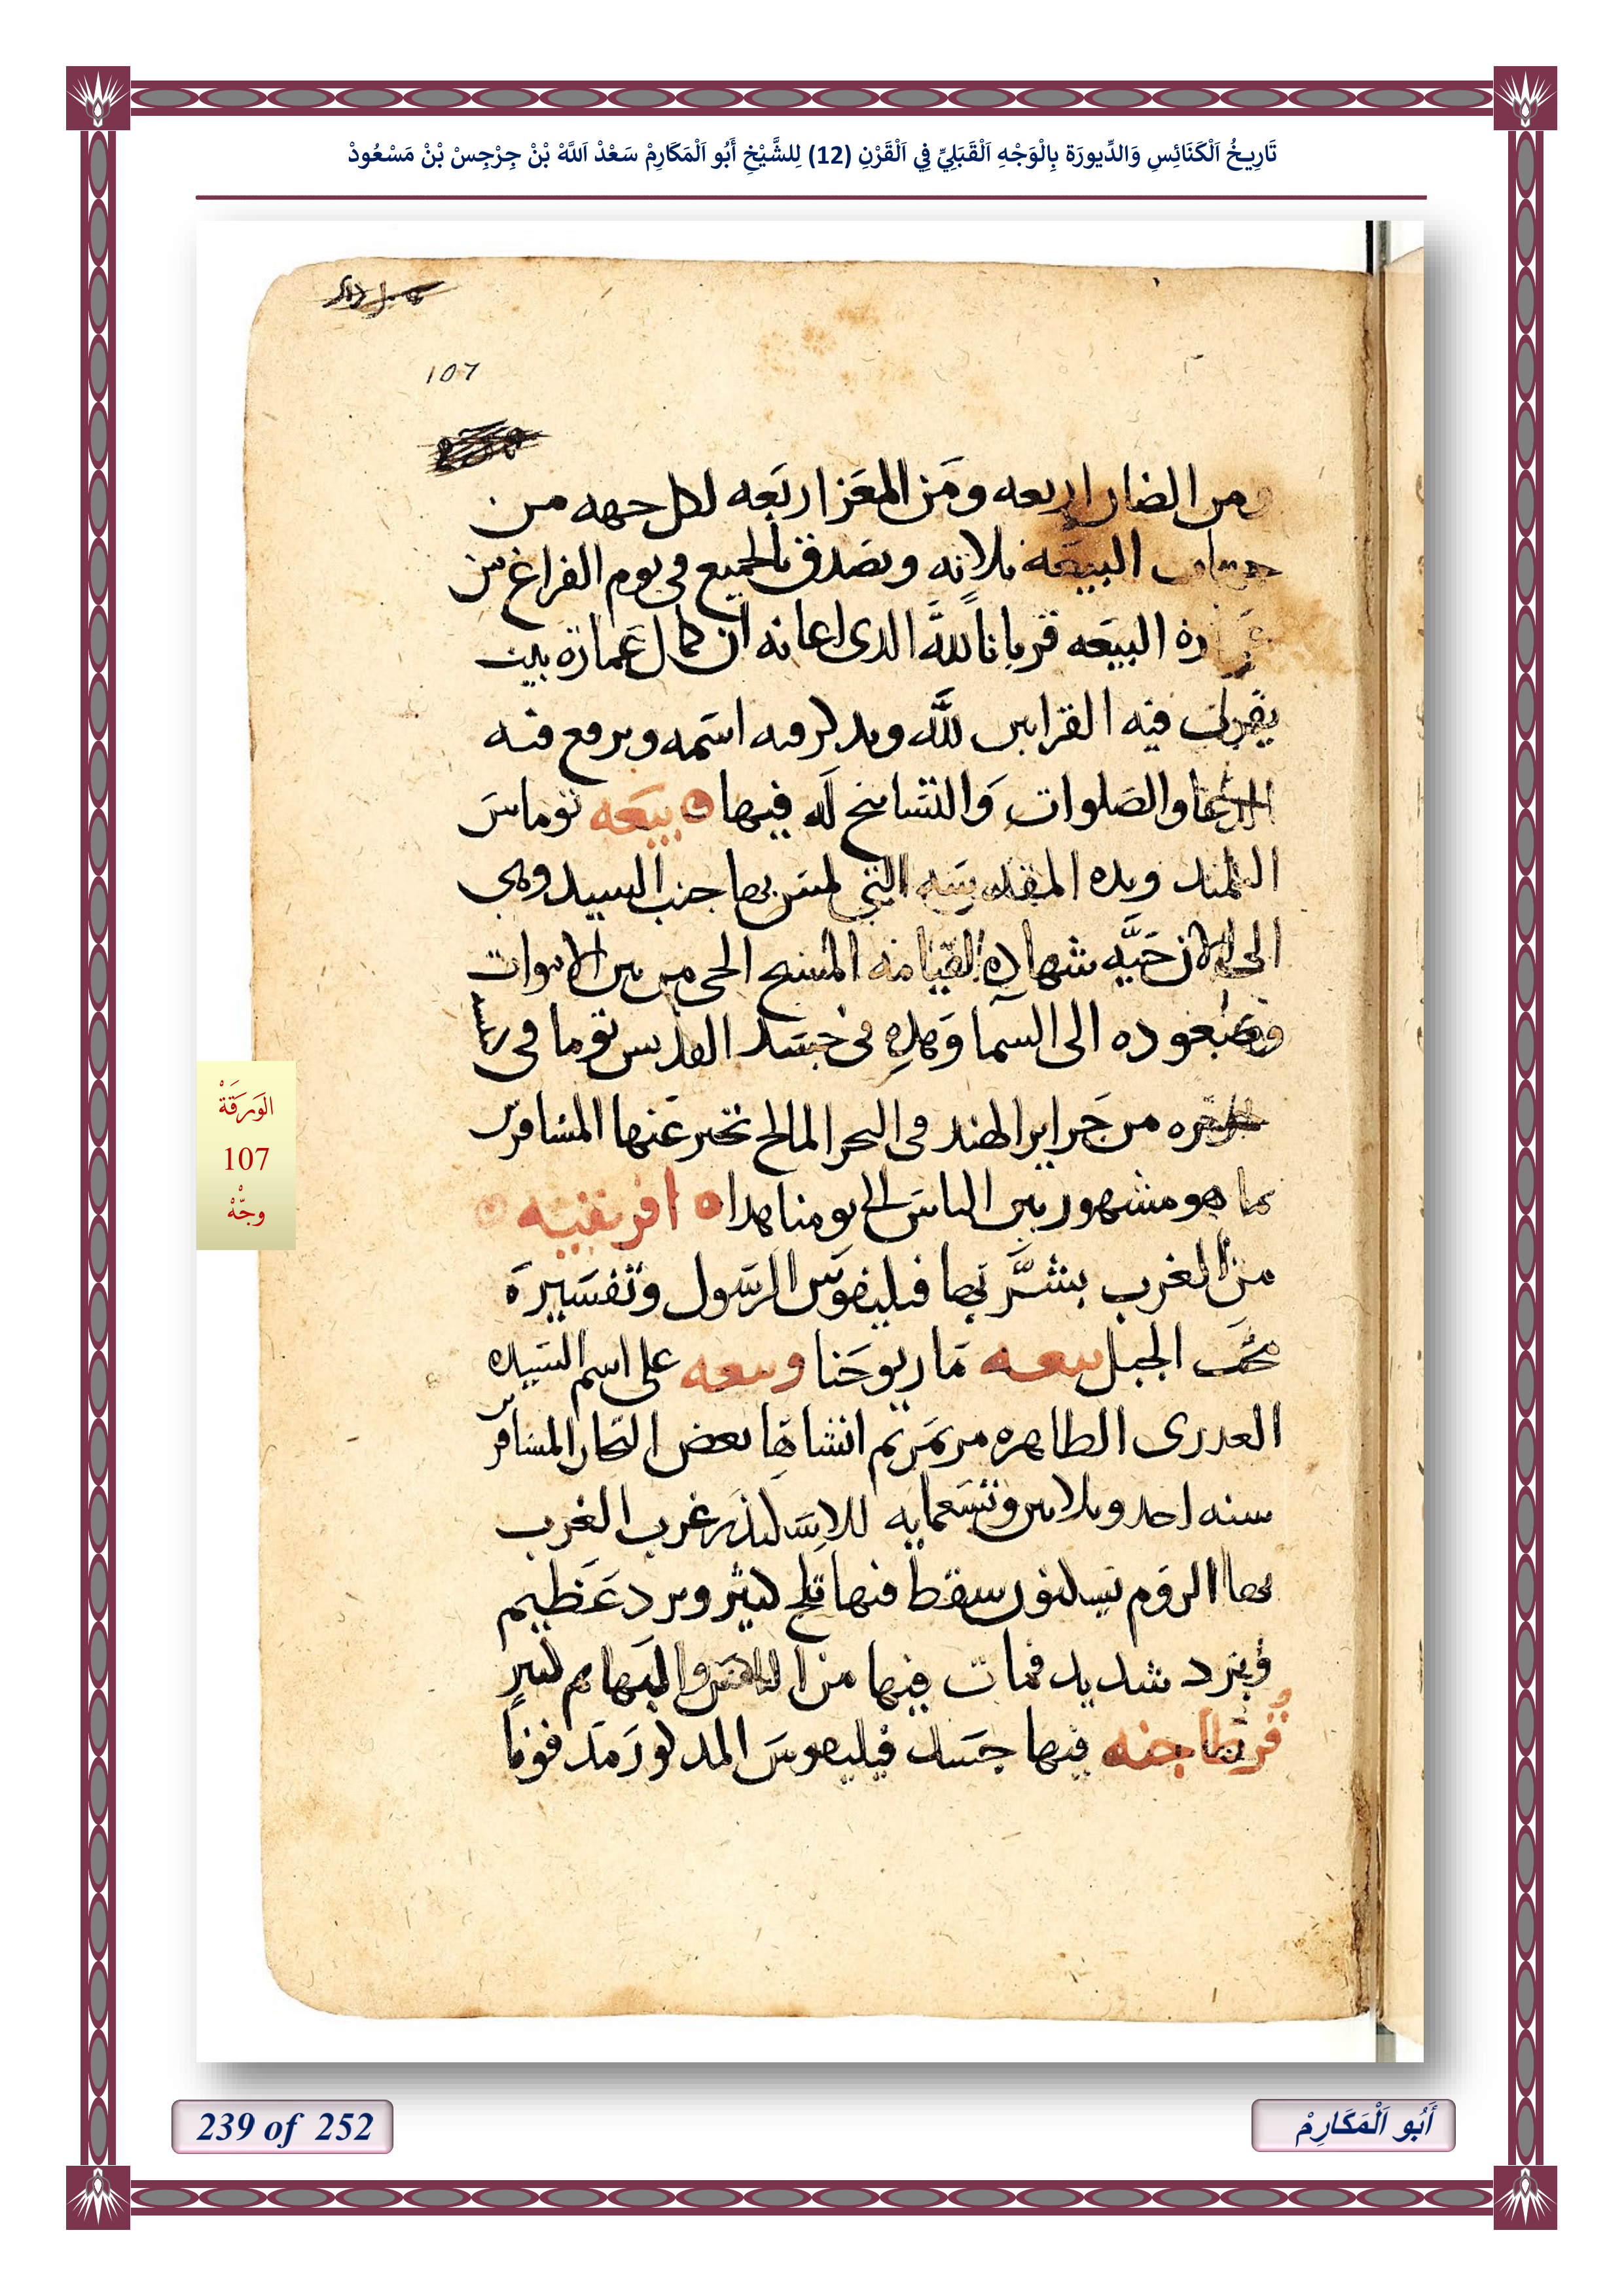 تَارِيخُ اَلْكَنَائِسِ وَالدِّيورَة بِالْوَجْهِ اَلْقَبَلِيِّ فِي اَلْقَرْنِ (12) لِلشَّيْخِ أَبُو اَلْمَكَارِمْ سَعْدْ اَللَّهْ بْنْ جِرْجِسْ بْنْ مَسْعُودْ
107
ومن الضان اربعه ومن المعز اربعه لكل جهه من
البيعه ثلاثه وتصدق بالجميع فى يوم الفراغ من
البيعه قربانا لله الدى اعانه ان كمال عمارة بيت
يقرب فيه القرابين لله ويدكر فيه اسمه ويرفع فيه
الدعا والصلوات والتسابيح له فيها بيعه توماس
التلميد ويده المقدسه التي لمس بها جنب السيد وهى
الى الان حيه شهاده لقيامه المسيح الحى من بين الاموات
وصعوده الى السما وهده فى جسد القديس توما فى
جزيره من جزاير الهند فى البحر المالح تخبر عنها المسافرين
بما هو مشهور بين الناس الى يومنا هدا افريقيه
من الغرب بشر بها فيلبفوس الرسول وتفسيره
محب الجبل بيعه مار يوحنا وبيعه على اسم السيده
العدرى الطاهره مرتمريم انشاها بعض التجار المسافرين
سنه احد وثلاثين وتسعمايه للاسكندر غرب الغرب
بها الروم يسكنون سقط فيها ثلج كثير وبرد عظيم
وبرد شديد فمات فيها من الناس والبهايم كثير
قرطاجنه فيها جسد فيليفوس المدكور مدفونا
الوَرَقَةْ
107
وجّهْ
239 of 252
أَبُو اَلْمَكَارِمْ